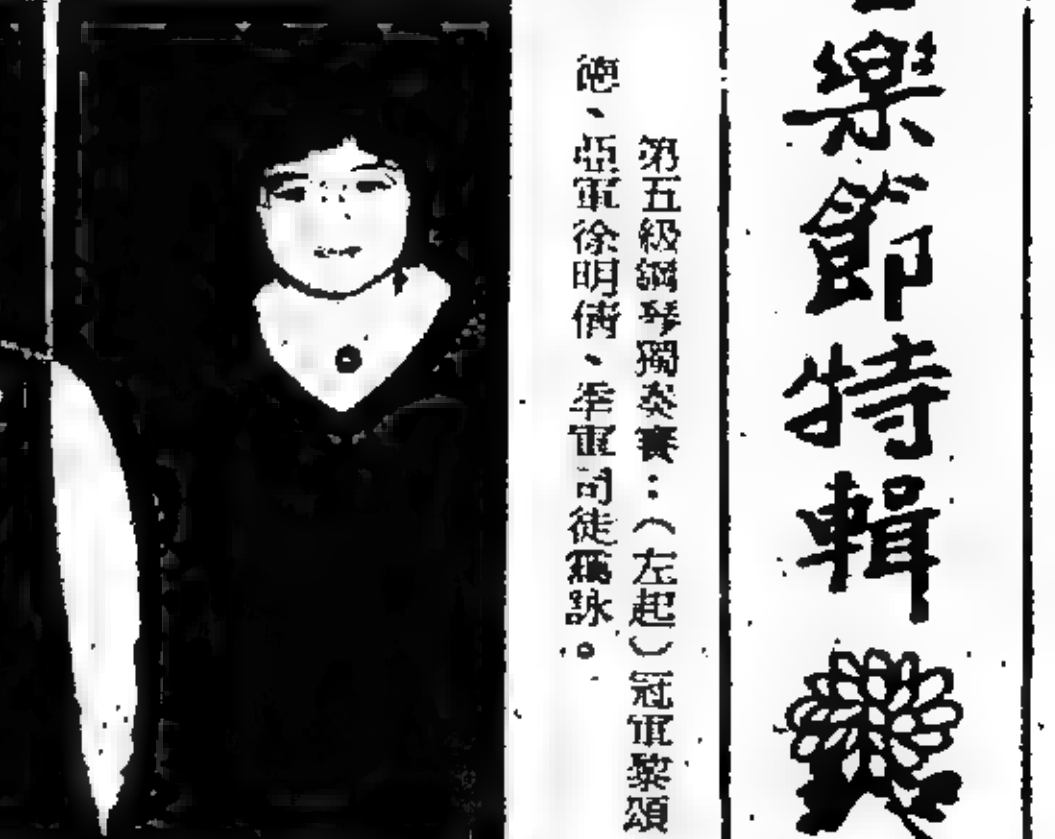 樂節特輯
第五級鋼琴獨奏賽：（左起）冠軍黎頌
德、亞軍徐明倩、季軍司徒詠。